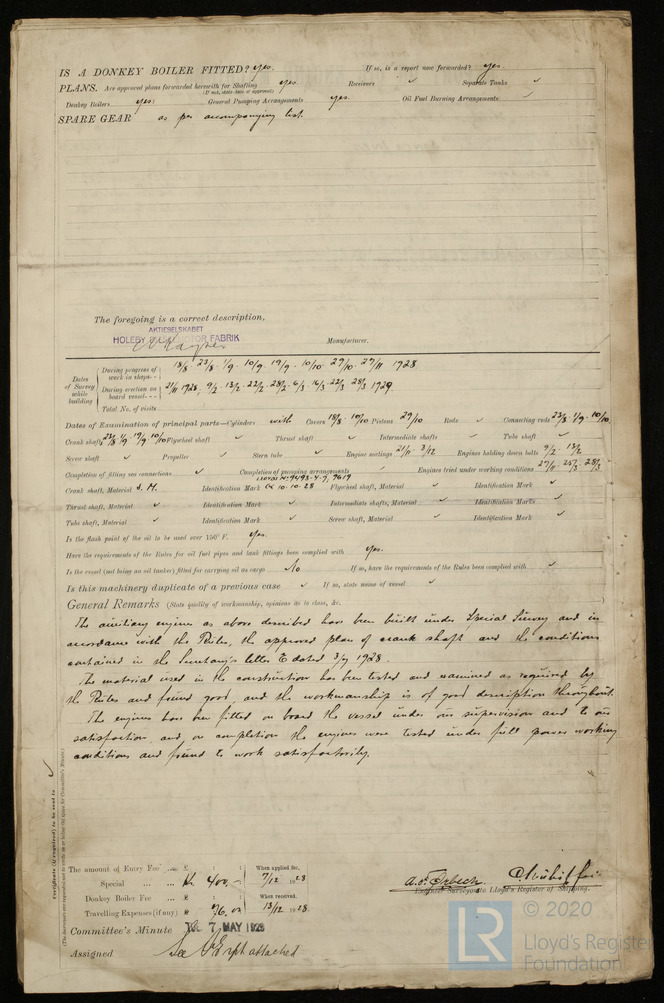 IS A DONKEY BOILER FITTED? yes. If so, is a report now forwarded? yes.
PLANS. Are approved plans forwarded herewith for Shafting yes. Receivers ✓ Separate Tanks ✓
(If not, state date of approval)
Donkey Boilers yes. General Pumping Arrangements yes. Oil Fuel Burning Arrangements ✓
SPARE GEAR as per accompanying list.
The foregoing is a correct description,
AKTIESELSKABET
HOLEBY MOTOR FABRIK Manufacturer.
Dates of Survey while building
During progress of work in shops - - 18/8 23/8 1/9 10/9 19/9 10/10 29/10 29/11 1928
During erection on board vessel - - - 21/11 1928, 9/2 13/2 22/2 28/2 6/3 16/3 22/3 28/3 1929
Total No. of visits
Dates of Examination of principal parts—Cylinders with Covers 18/8 10/10 Pistons 29/10 Rods ✓ Connecting rods 23/8 1/9 10/10
Crank shaft 23/8 1/9 19/9 10/10 Flywheel shaft ✓ Thrust shaft ✓ Intermediate shafts ✓ Tube shaft ✓
Screw shaft ✓ Propeller ✓ Stern tube ✓ Engine seatings 21/11 3/12 Engines holding down bolts 9/2 13/2
Completion of fitting sea connections ✓ Completion of pumping arrangements ✓ Engines tried under working conditions 29/11 25/3 28/3
Crank shaft, Material S.M. Identification Mark 10.10.28 Flywheel shaft, Material ✓ Identification Mark ✓
Thrust shaft, Material ✓ Identification Mark ✓ Intermediate shafts, Material ✓ Identification Marks ✓
Tube shaft, Material ✓ Identification Mark ✓ Screw shaft, Material ✓ Identification Mark ✓
Is the flash point of the oil to be used over 150° F. yes.
Have the requirements of the Rules for oil fuel pipes and tank fittings been complied with yes.
Is the vessel (not being an oil tanker) fitted for carrying oil as cargo No If so, have the requirements of the Rules been complied with ✓
Is this machinery duplicate of a previous case ✓ If so, state name of vessel ✓
General Remarks (State quality of workmanship, opinions as to class, &c.
The auxiliary engines as above described have been built under Special Survey and in
accordance with the Rules, the approved plan of crank shaft and the conditions
contained in the Secretary's letter E dated 3/7 1928.
The material used in the construction has been tested and examined as required by
the Rules and found good, and the workmanship is of good description throughout.
The engines have been fitted on board the vessel under our supervision and to our
satisfaction and on completion the engines were tested under full power working
conditions and found to work satisfactorily.
Certificate (if required) to be sent to
The amount of Entry Fee £ : : When applied for,
Special Kr. 400,- 7/12 1928
Donkey Boiler Fee £ : : When received,
Travelling Expenses (if any) £ 76.00 13/12 1928
Engineer Surveyor to Lloyd's Register of Shipping.
Committee's Minute TUE. 7 MAY 1929
Assigned See rpt attached
LR © 2020
Lloyd's Register
Foundation